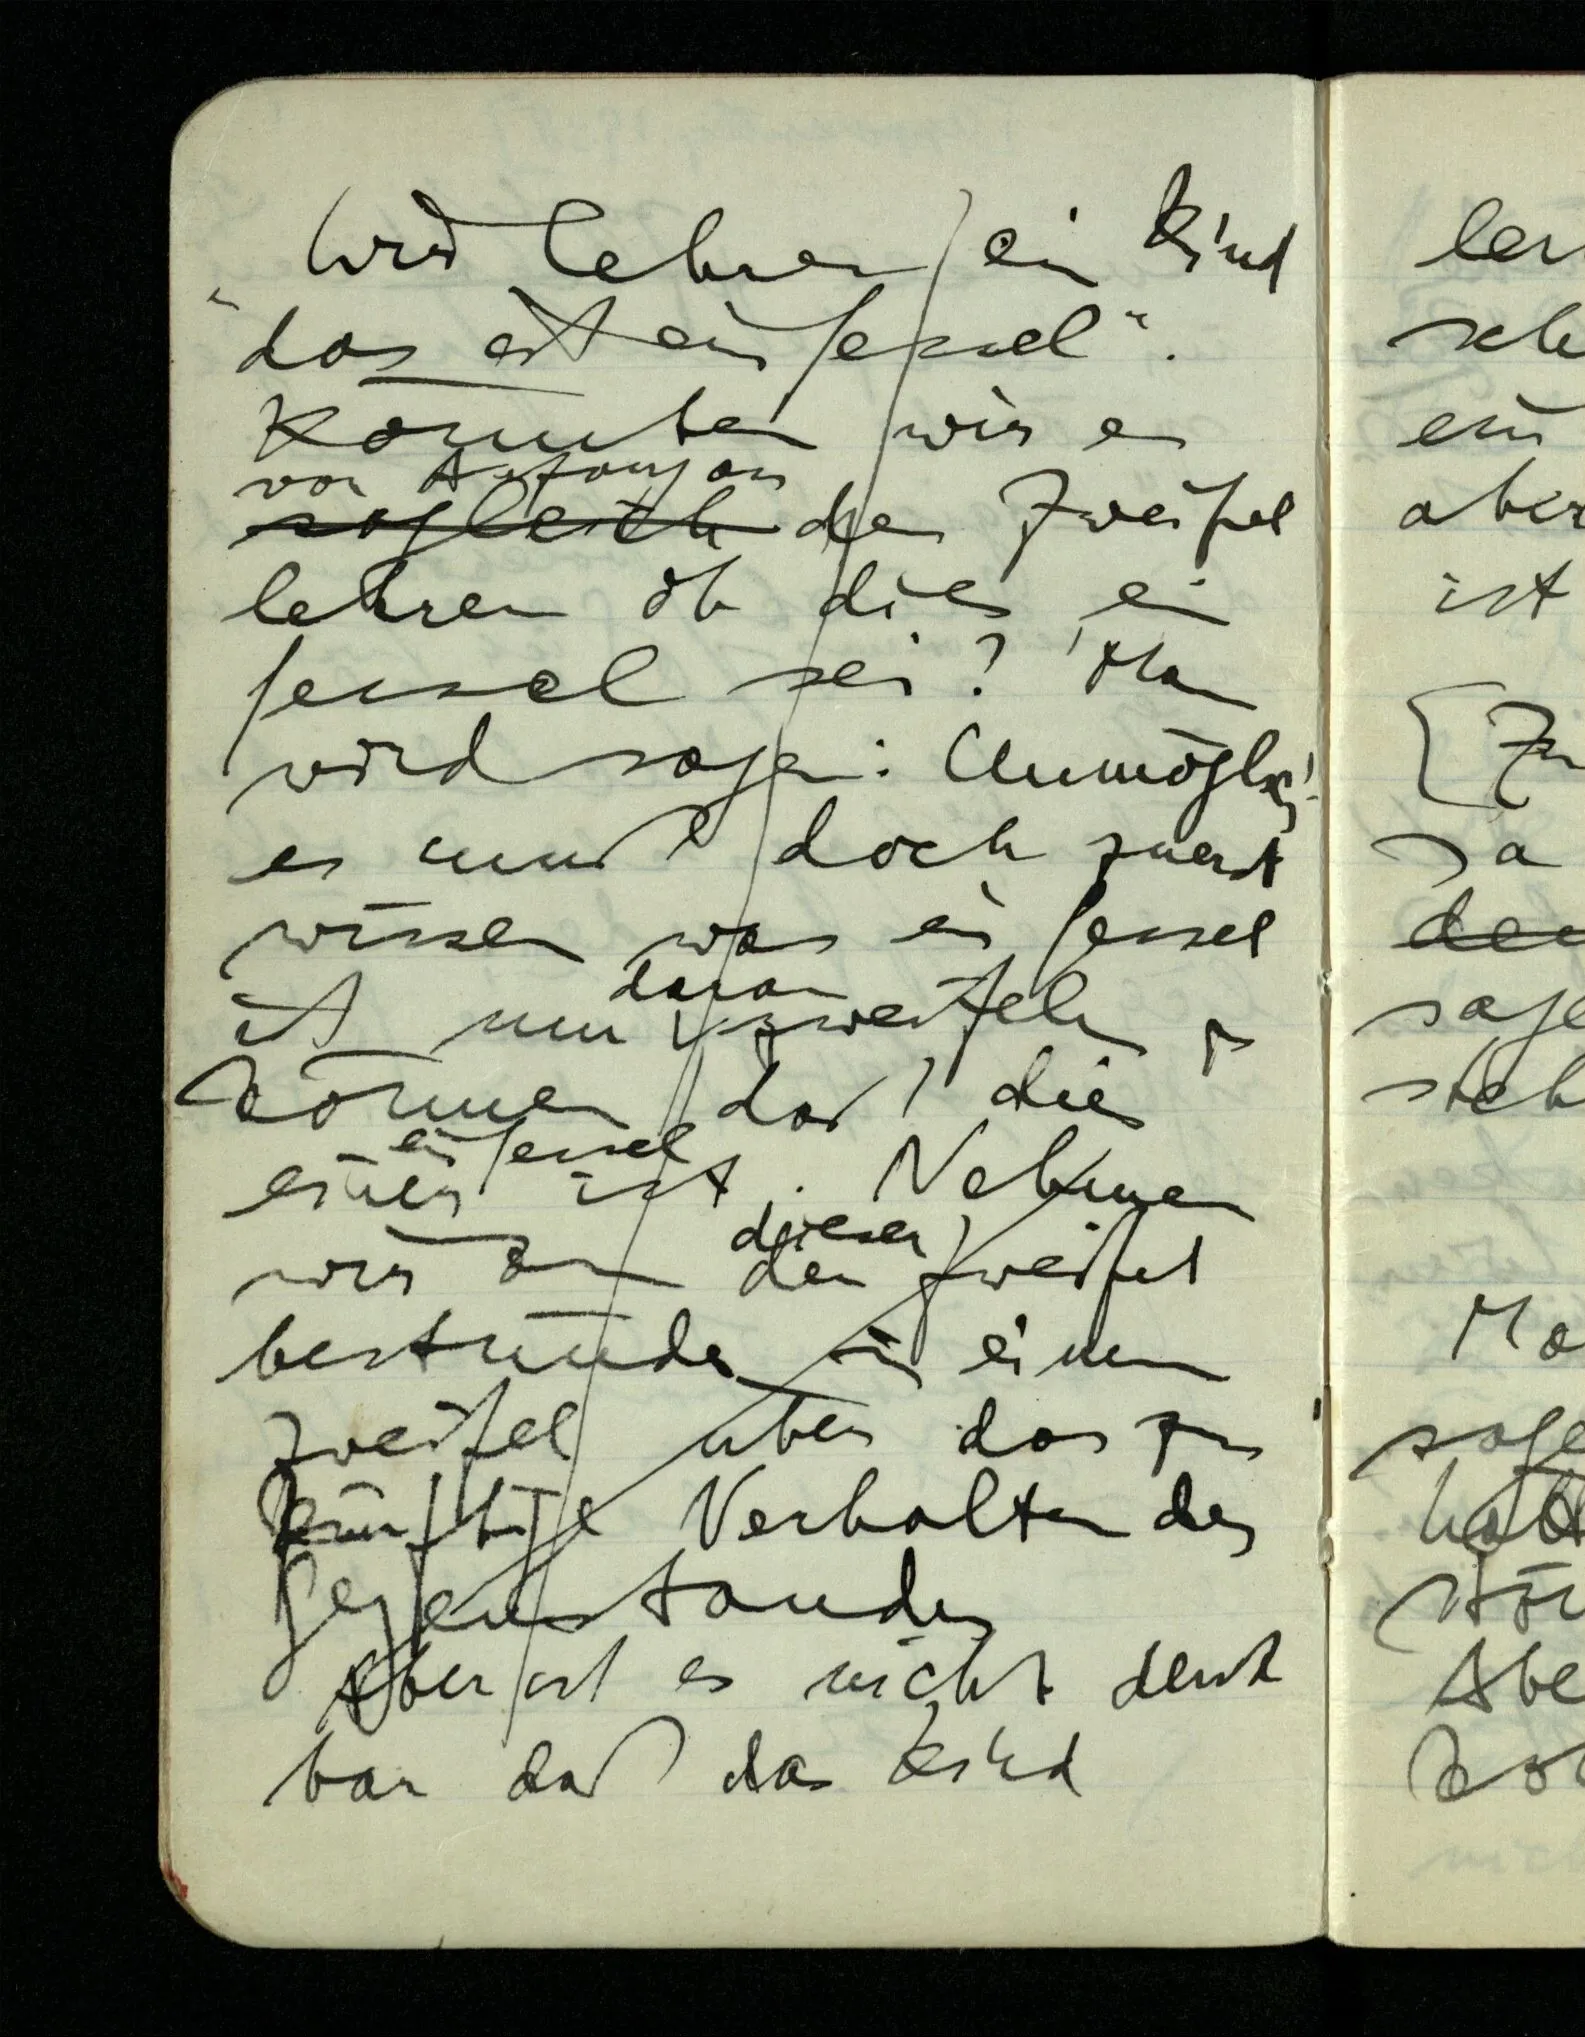 Wir lehren ein Kind
"das ist ein Sessel".
Könnten wir es
von Anfang an
sogleich den Zweifel
lehren ob dies ein
Sessel sei? Man
wird sagen: Unmöglich!
es muß doch zuerst
wissen was ein Sessel
ist um zweifeln zu
daran
können daß dies
ein Sessel
einer ist. Nehmen
dieser
wir an der Zweifel
bestünde in einem
Zweifel über das zu
künftige Verhalten des
Gegenstandes
Aber ist es nicht denk
bar daß das Kind
ler
sch
ein
aber
ist
[Zu
sa
den
sage
sieh
Ma
sage
hab
Abe